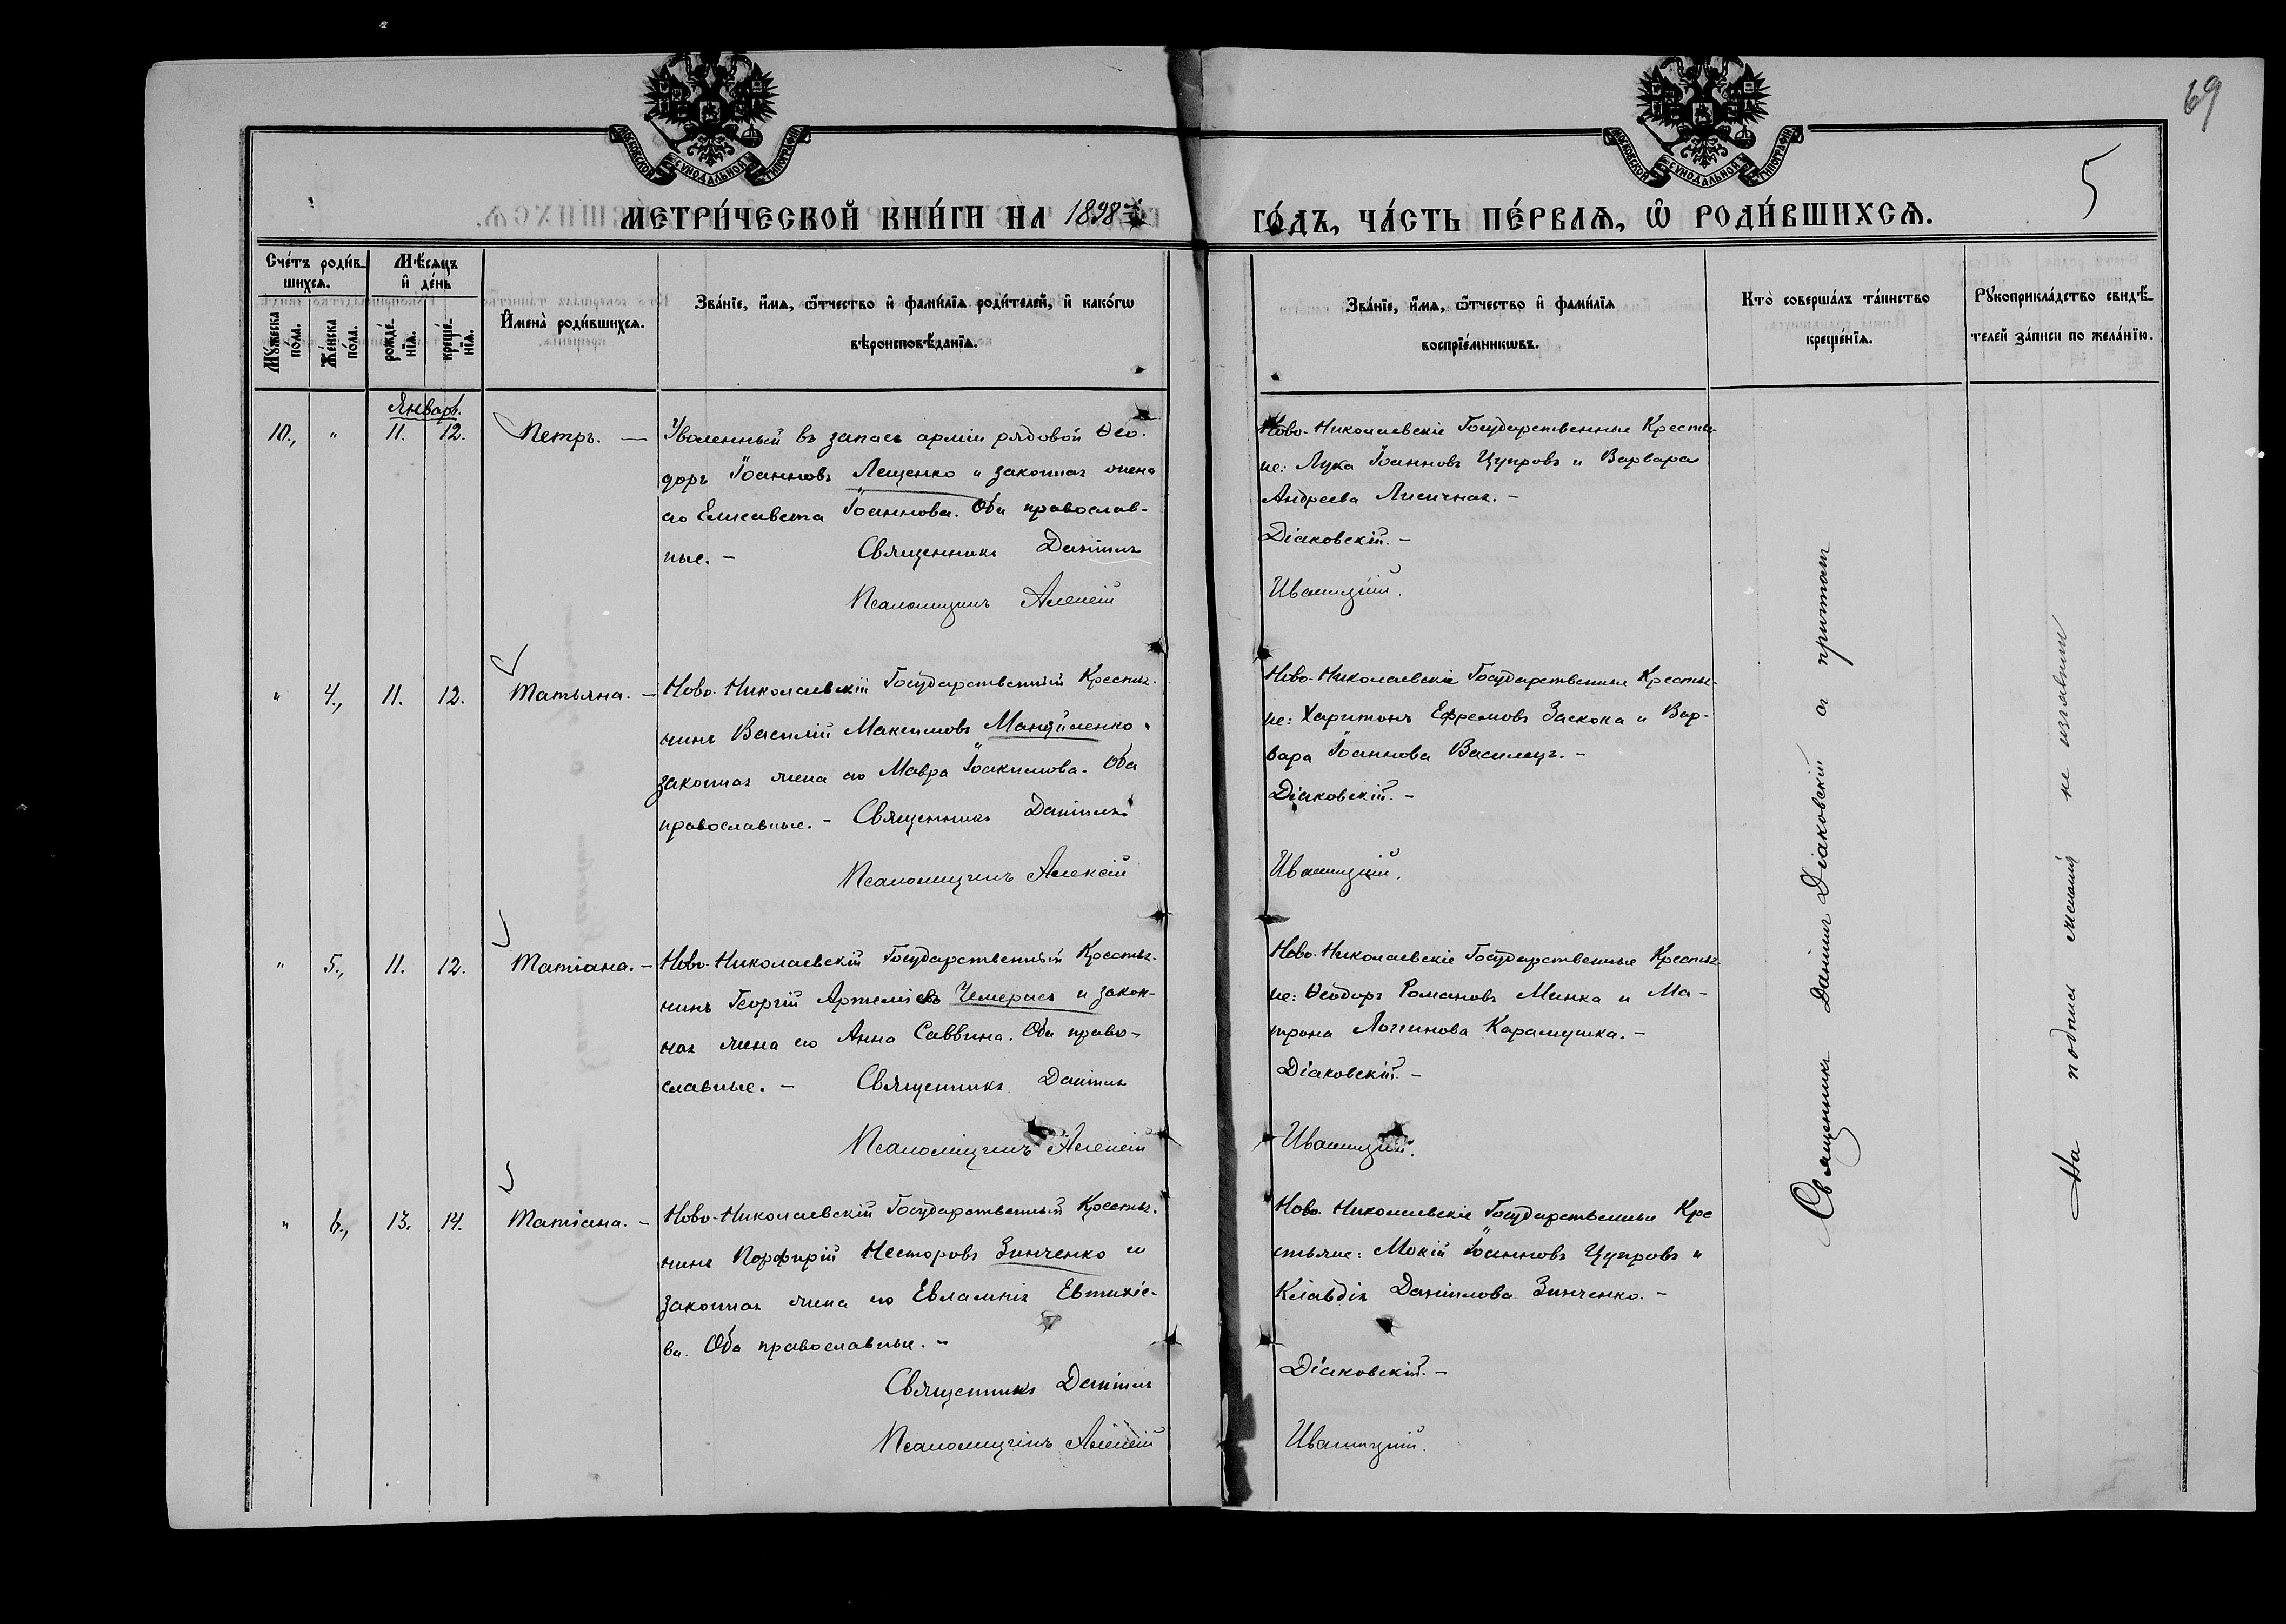 69
5
МОСКОВСКОЙ СУНОДАЛЬНОЙ ТИПОГРАФІИ
МОСКОВСКОЙ СУНОДАЛЬНОЙ ТИПОГРАФІИ
МЕТРИ́ЧЕСКОЙ КНИ́ГИ НА 1898й
ГО́ДЪ, ЧА́СТЬ ПЕ́РВАѦ, Ѡ҆ РОДИ́ВШИХСѦ.
Сче́тъ роди́в-
шихсѧ.
Мꙋ́жеска по́ла.
Же́нска по́ла.
Мѣ́сѧцъ
и҆ де́нь
рожде́-
нїѧ.
креще́-
нїѧ.
И҆мена̀ роди́вшихсѧ.
Зва́нїе, и҆́мѧ, ѻ҆́тчество и҆ фами́лїѧ роди́телей, и҆ како́гѡ
вѣроисповѣ́данїѧ.
Зва́нїе, и҆́мѧ, ѻ҆́тчество и҆ фами́лїѧ
воспрїе́мникѡвъ.
Кто̀ соверша́лъ та́инство
креще́нїѧ.
Рꙋкоприкла́дство свидѣ́-
телей за́писи по жела́нїю.
Январь.
10., " 11. 12. Петръ. —
Уволенный въ запасъ арміи рядовой Ѳео-
доръ Іоанновъ Лещенко и законная жена
его Елисавета Іоаннова. Оба православ-
ные. — Священникъ Даніилъ
Псаломщикъ Алексій
Ново-Николаевскіе Государственные Крестья-
не: Лука Іоанновъ Цупровъ и Варвара
Андреева Лисичная. —
Діаковскій. —
Ивашицкій.
" 4., 11. 12. Татьяна. —
Ново-Николаевскій Государственный Крестья-
нинъ Василій Максимовъ Мануйленко и
законная жена его Мавра Іоакимова. Оба
православные. — Священникъ Даніилъ
Псаломщикъ Алексій
Ново-Николаевскіе Государственные Крестья-
не: Харитонъ Ефремовъ Заскока и Вар-
вара Іоаннова Василець. —
Діаковскій. —
Ивашицкій.
" 5., 11. 12. Татіана. —
Ново-Николаевскій Государственный Крестья-
нинъ Георгій Артеміевъ Чемерисъ и закон-
ная жена его Анна Саввина. Оба право-
славные. — Священникъ Даніилъ
Псаломщикъ Алексій
Ново-Николаевскіе Государственные Крестья-
не: Ѳеодоръ Романовъ Минка и Ма-
трона Логгинова Карамушка. —
Діаковскій. —
Ивашицкій.
" 6., 13. 14. Татіана. —
Ново-Николаевскій Государственный Крестья-
нинъ Порфирій Несторовъ Зинченко и
законная жена его Евлампія Евтихіе-
ва. Оба православные. —
Священникъ Даніилъ
Псаломщикъ Алексій
Ново-Николаевскіе Государственные Кре
стьяне: Мокій Іоанновъ Цупровъ и
Клавдія Даніилова Зинченко. —
Діаковскій. —
Ивашицкій.
Священникъ Даніилъ Діаковскій съ причтомъ
На подписи желанія не изъявили